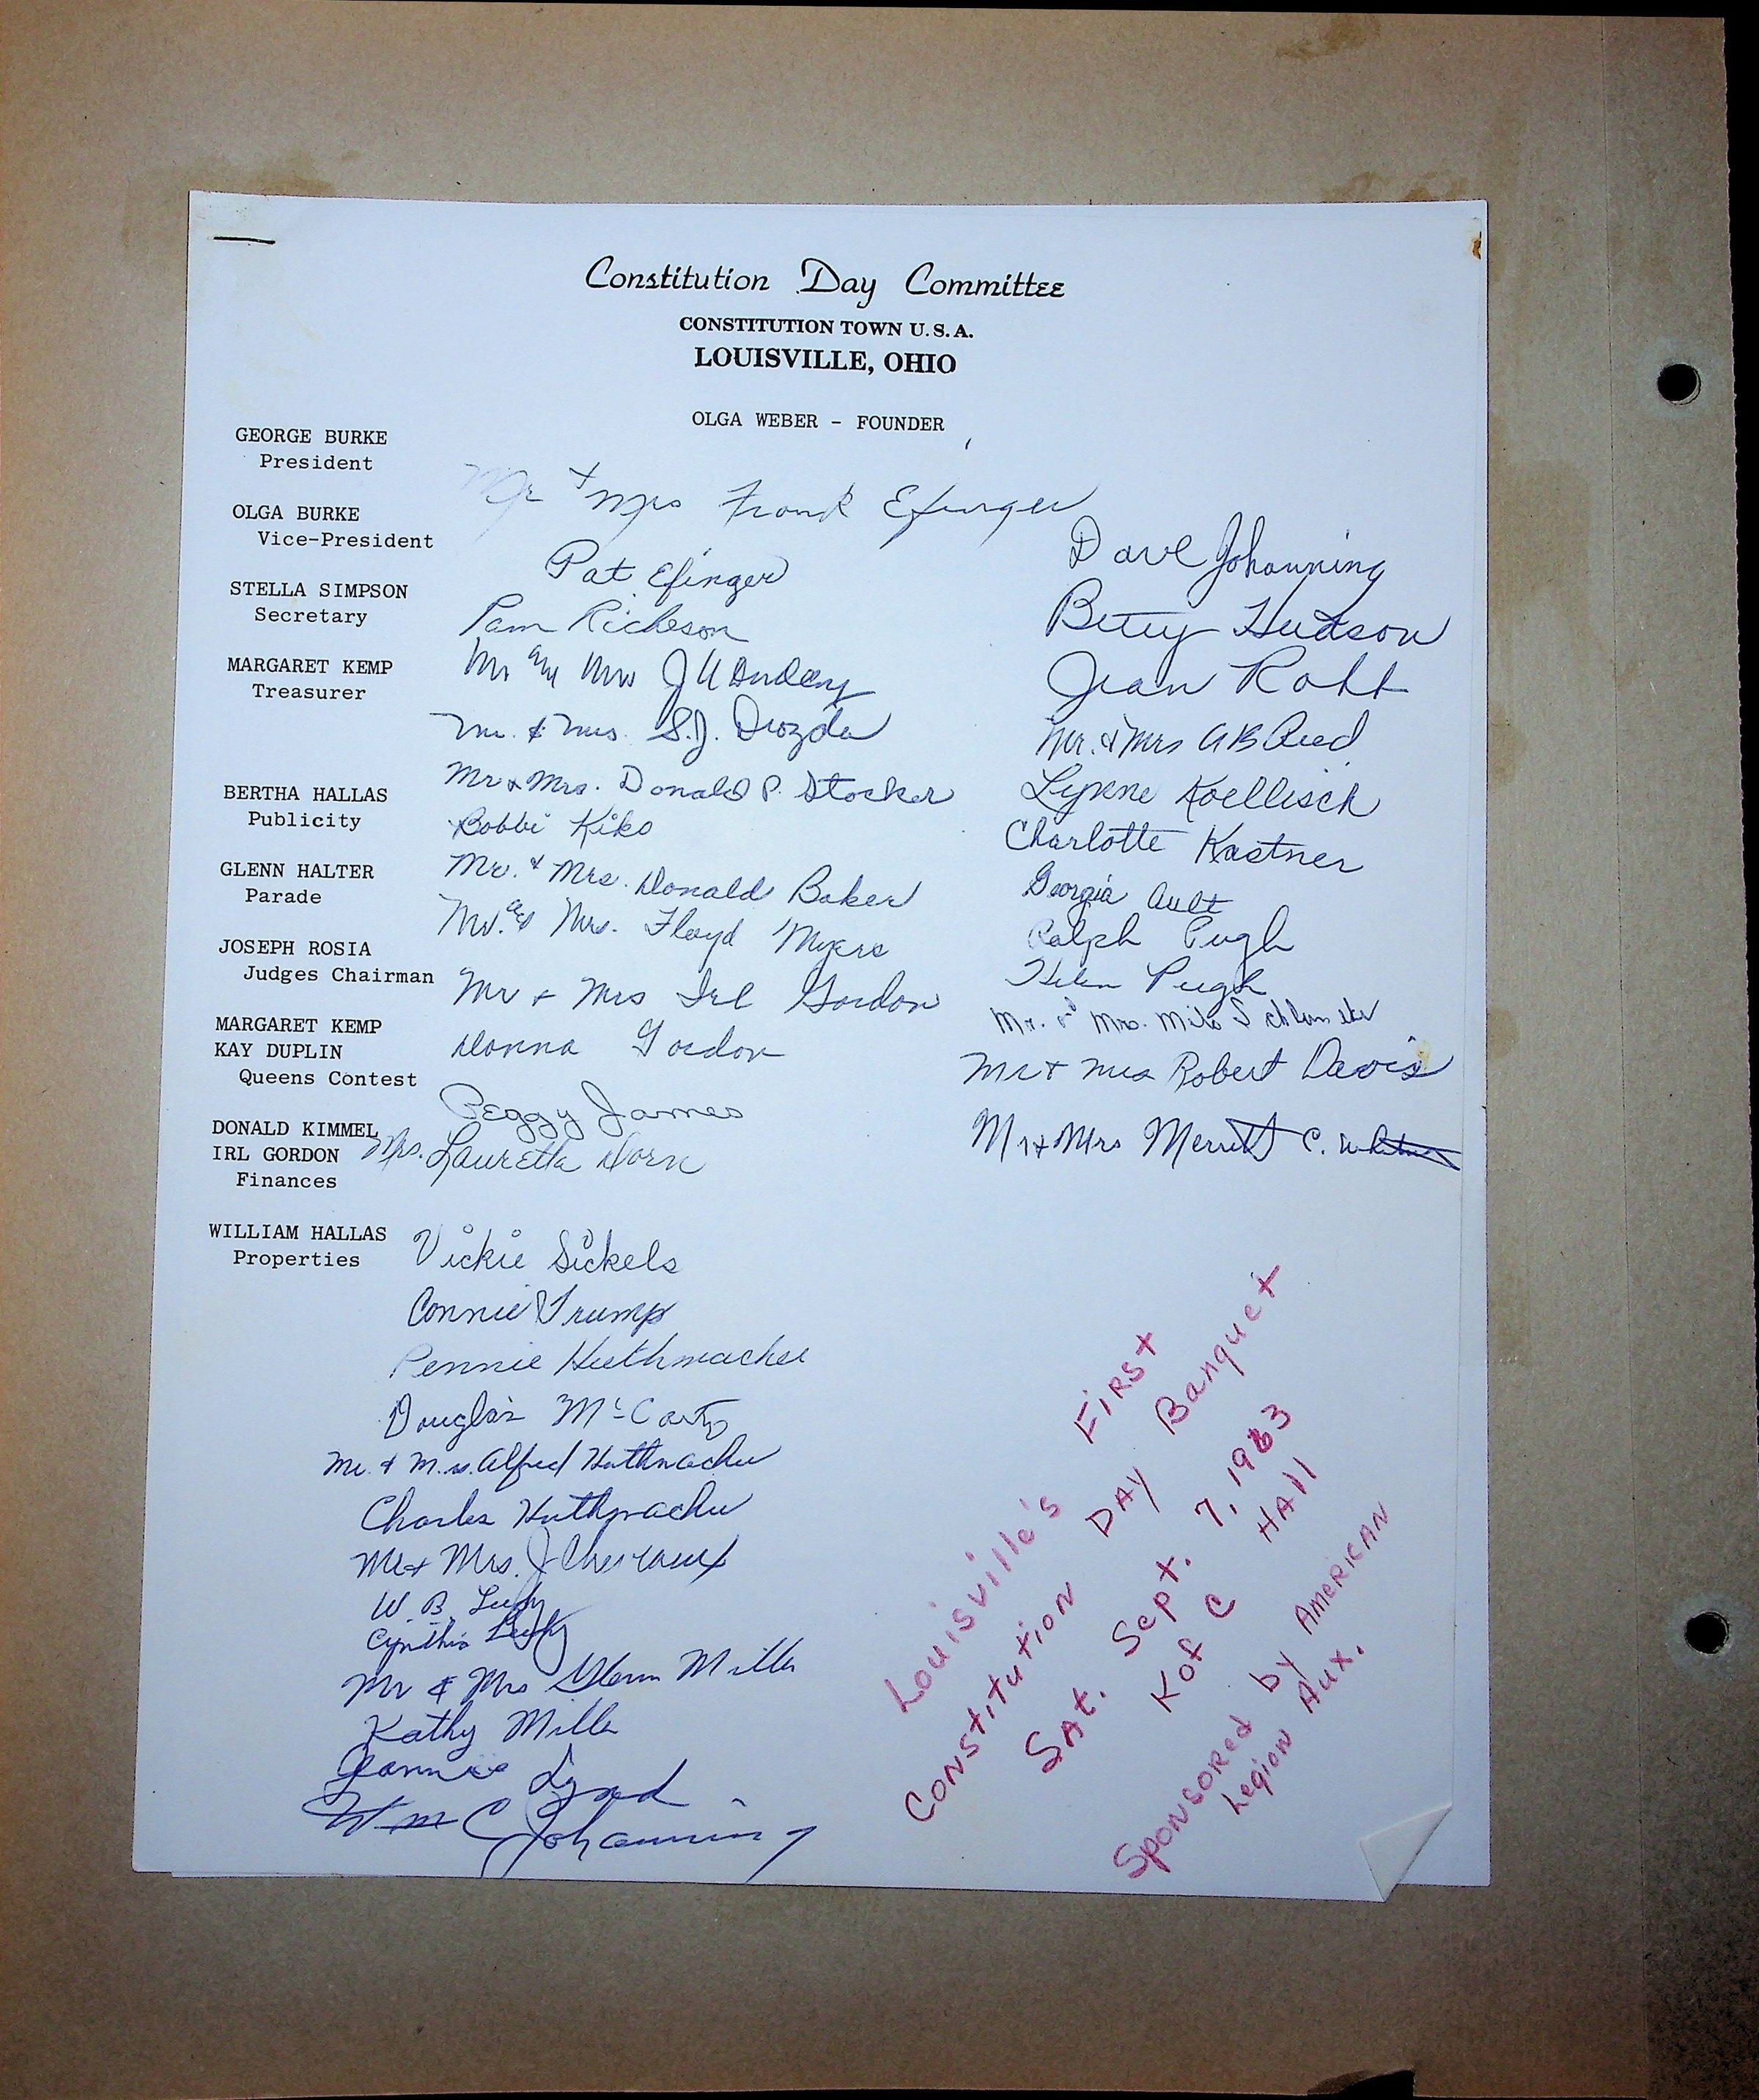 Constitution Day Committee
CONSTITUTION TOWN U.S.A.
LOUISVILLE, OHIO
OLGA WEBER - FOUNDER
GEORGE BURKE
President
OLGA BURKE
Vice-President
STELLA SIMPSON
Secretary
MARGARET KEMP
Treasurer
BERTHA HALLAS
Publicity
GLENN HALTER
Parade
JOSEPH ROSIA
Judges Chairman
MARGARET KEMP
KAY DUPLIN
Queens Contest
DONALD KIMMEL
IRL GORDON
Finances
WILLIAM HALLAS
Properties
Mr + Mrs Frank Efinger
Pat Efinger
Pam Richeson
Mr and Mrs J
Mr. & Mrs. S.J. Drozda
Mr + Mrs. Donald P. Stocker
Bobbi Kiko
Mr. & Mrs. Donald Baker
Mr. and Mrs. Floyd Myers
Mr + Mrs Irl Gordon
Donna Gordon
Peggy James
Mrs. Lauretta Dorn
Vickie Sickels
Connie Trump
Pennie Huthmacher
Douglas McCarty
Mr. & Mrs. Alfred Huthmacher
Charles Huthmacher
Mr + Mrs. J
W. B.
Cynthia
Mr & Mrs Glenn Miller
Kathy Miller
Jeannie
Wm C Johanning
Dave Johanning
Betty Hudson
Jean
Mr. & Mrs AB Reed
Lynne Koellisch
Charlotte Kastner
Georgia Ault
Ralph Pugh
Helen Pugh
Mr. and Mrs. Milo
Mr + Mrs Robert Davis
Mr + Mrs Merritt C.
Louisville's First
Constitution DAY Banquet
SAt. Sept. 7, 1963
K of C HAll
Sponsored by AMERICAN
Legion Aux.